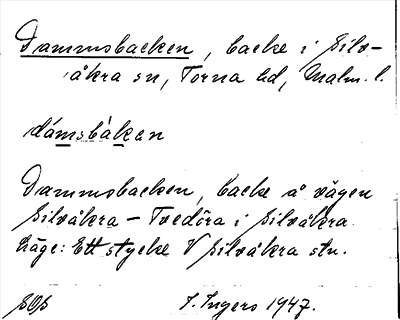 Dammsbacken, backe i Silv-
åkra sn, Torna hd, Malm. l.
dámsbàkan
Dammsbacken, backe å vägen
Silvåkra – Tvedöra i Silvåkra.
Läge: Ett stycke V Silvåkra stn.
I. Ingers 1947.